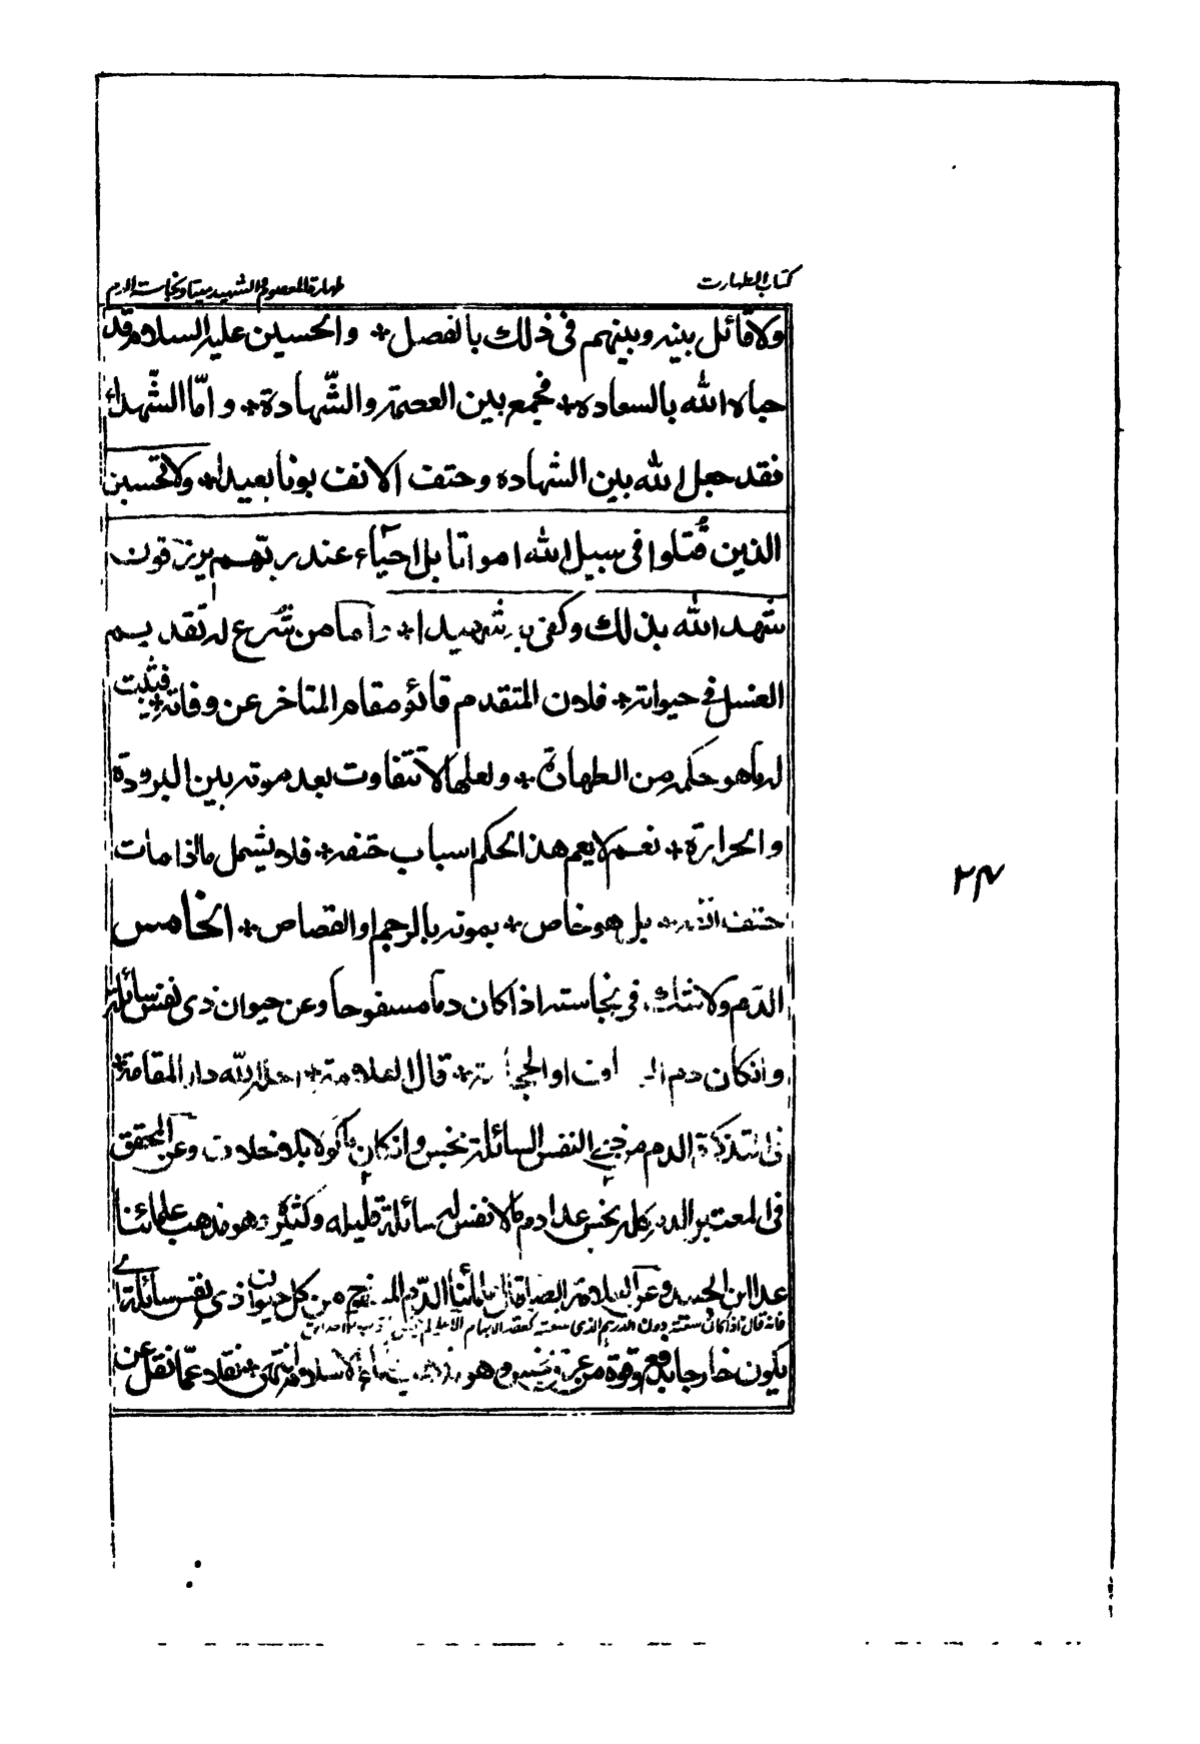 كتاب الطهارت
طهارة المعصوم والشهيد ميتا ونجاسة الدم
ولا قائل بينه وبينهم فى ذلك بالفصل * والحسين عليه السلام قد
حباه الله بالسعاده * فجمع بين العصمة والشّهادة * وامّا الشّهداء
فقد جعل الله بين الشهاده وحتف الانف بونا بعيدا * ولا تحسبن
الذين قُتلوا فى سبيل الله امواتا بل احياء عند ربّهم يرزقون
شهد الله بذلك وكفى به شهيدا * واما من شرع له تقديم
الغسل فى حيوته * فلان المتقدم قائم مقام المتاخر عن وفاته * فيثبت
له ما هو حكمه من الطهارة * ولعلها لا تتفاوت بعد موته بين البرودة
والحرارة * نعم لا يعم هذا الحكم اسباب حتفه * فلا يشمل ما اذا مات
حتف انفه * بل هو خاص * بموته بالرجم او القصاص * الخامس
الدّم ولا شك فى نجاسته اذا كان دما مسفوحا وعن حيوان ذى نفس سائلة
وانكان دم او الحجامة * قال العلامة * احله الله دار المقامة *
فى التذكرة الدم من ذى النفس السائلة نجس وانكان ماكولا بلا خلاف وعن المحقق
فى المعتبر الدم كله نجس عدا دم ما لا نفس له سائلة قليله وكثيره وهو مذهب علمائنا
عدا ابن الجنيد وعن العلامة ايضا قال علمائنا الدّم المسفوح من كل حيوان ذى نفس سائلة اى
فانه قال اذا كان سعته دون الدرهم الذى سعته كعقد الابهام الاعلى لم ينجس الثوب
يكون خارجا بدفع وقوة من عرق نجس وهو مذهب علماء الاسلام انتهى نقلا عمّا نقل عن
٢٣